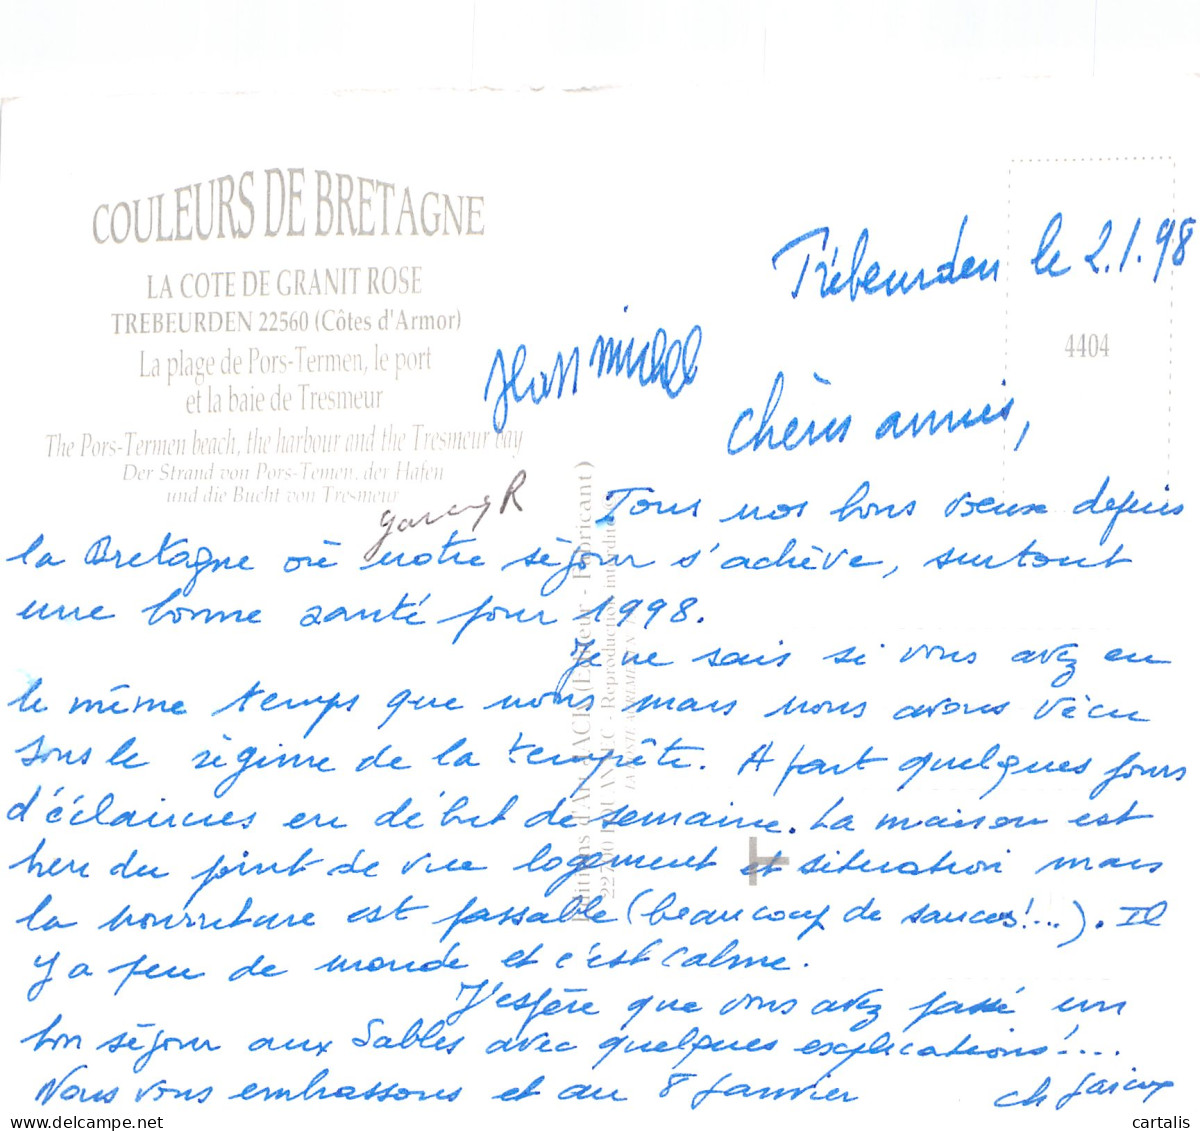 COULEURS DE BRETAGNE
LA COTE DE GRANIT ROSE
TREBEURDEN 22560 (Côtes d'Armor)
La plage de Pors-Termen, le port
et la baie de Tresmeur
The Pors-Termen beach, the harbour and the Tresmeur bay
Der Strand von Pors-Temen, der Hafen
und die Bucht von Tresmeur
4404
Trébeurden le 2.1.98
Michel
Chers amis,
Tous nos bons voeux depuis
la Bretagne où notre séjour s'achève, surtout
une bonne santé pour 1998.
Je ne sais si vous avez eu
le même temps que nous mais nous avons vécu
sous le régime de la tempête. A part quelques jours
d'éclaircies en début de semaine. La maison est
bien du point de vue logement et situation mais
la nourriture est passable (beaucoup de sauces!...). Il
y a peu de monde et c'est calme.
J'espère que vous avez passé un
bon séjour aux Sables avec quelques explications!....
Nous vous embrassons et au 8 janvier
cartalis